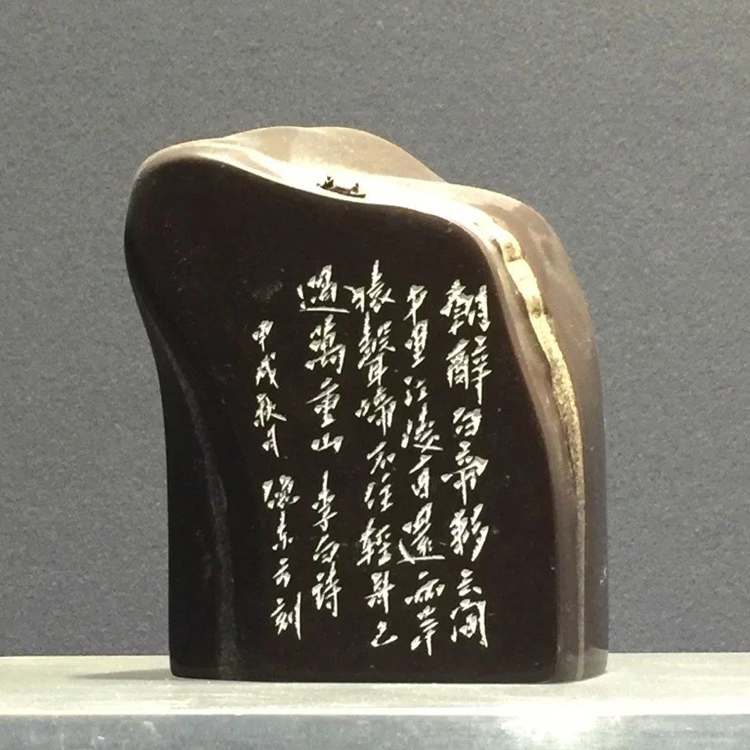 朝辭白帝彩云間
千里江陵一日還兩岸
猿聲啼不住輕舟已
過萬重山 李白詩
甲戌秋月 东刻